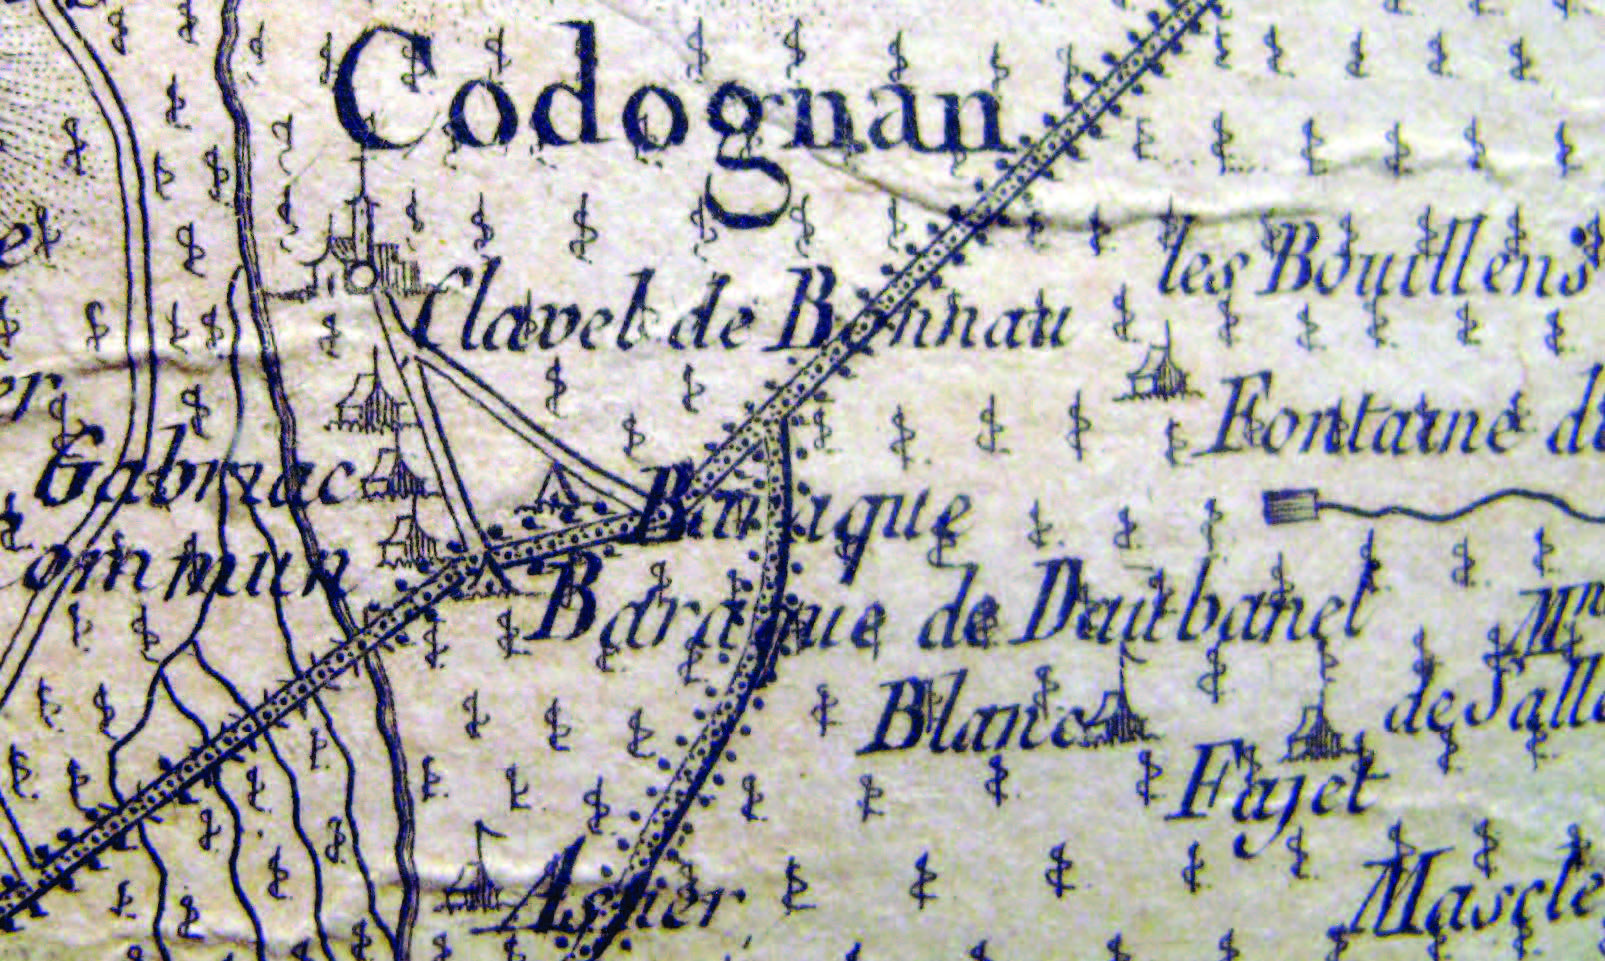 Codognan
les Bouillens
Clavel de Bonnau
Fontaine de
Gabriac
Baraque
ommun
Baraque de Daubanel
Mn
de Salle
Blanc
Fajet
Asier
Mascle